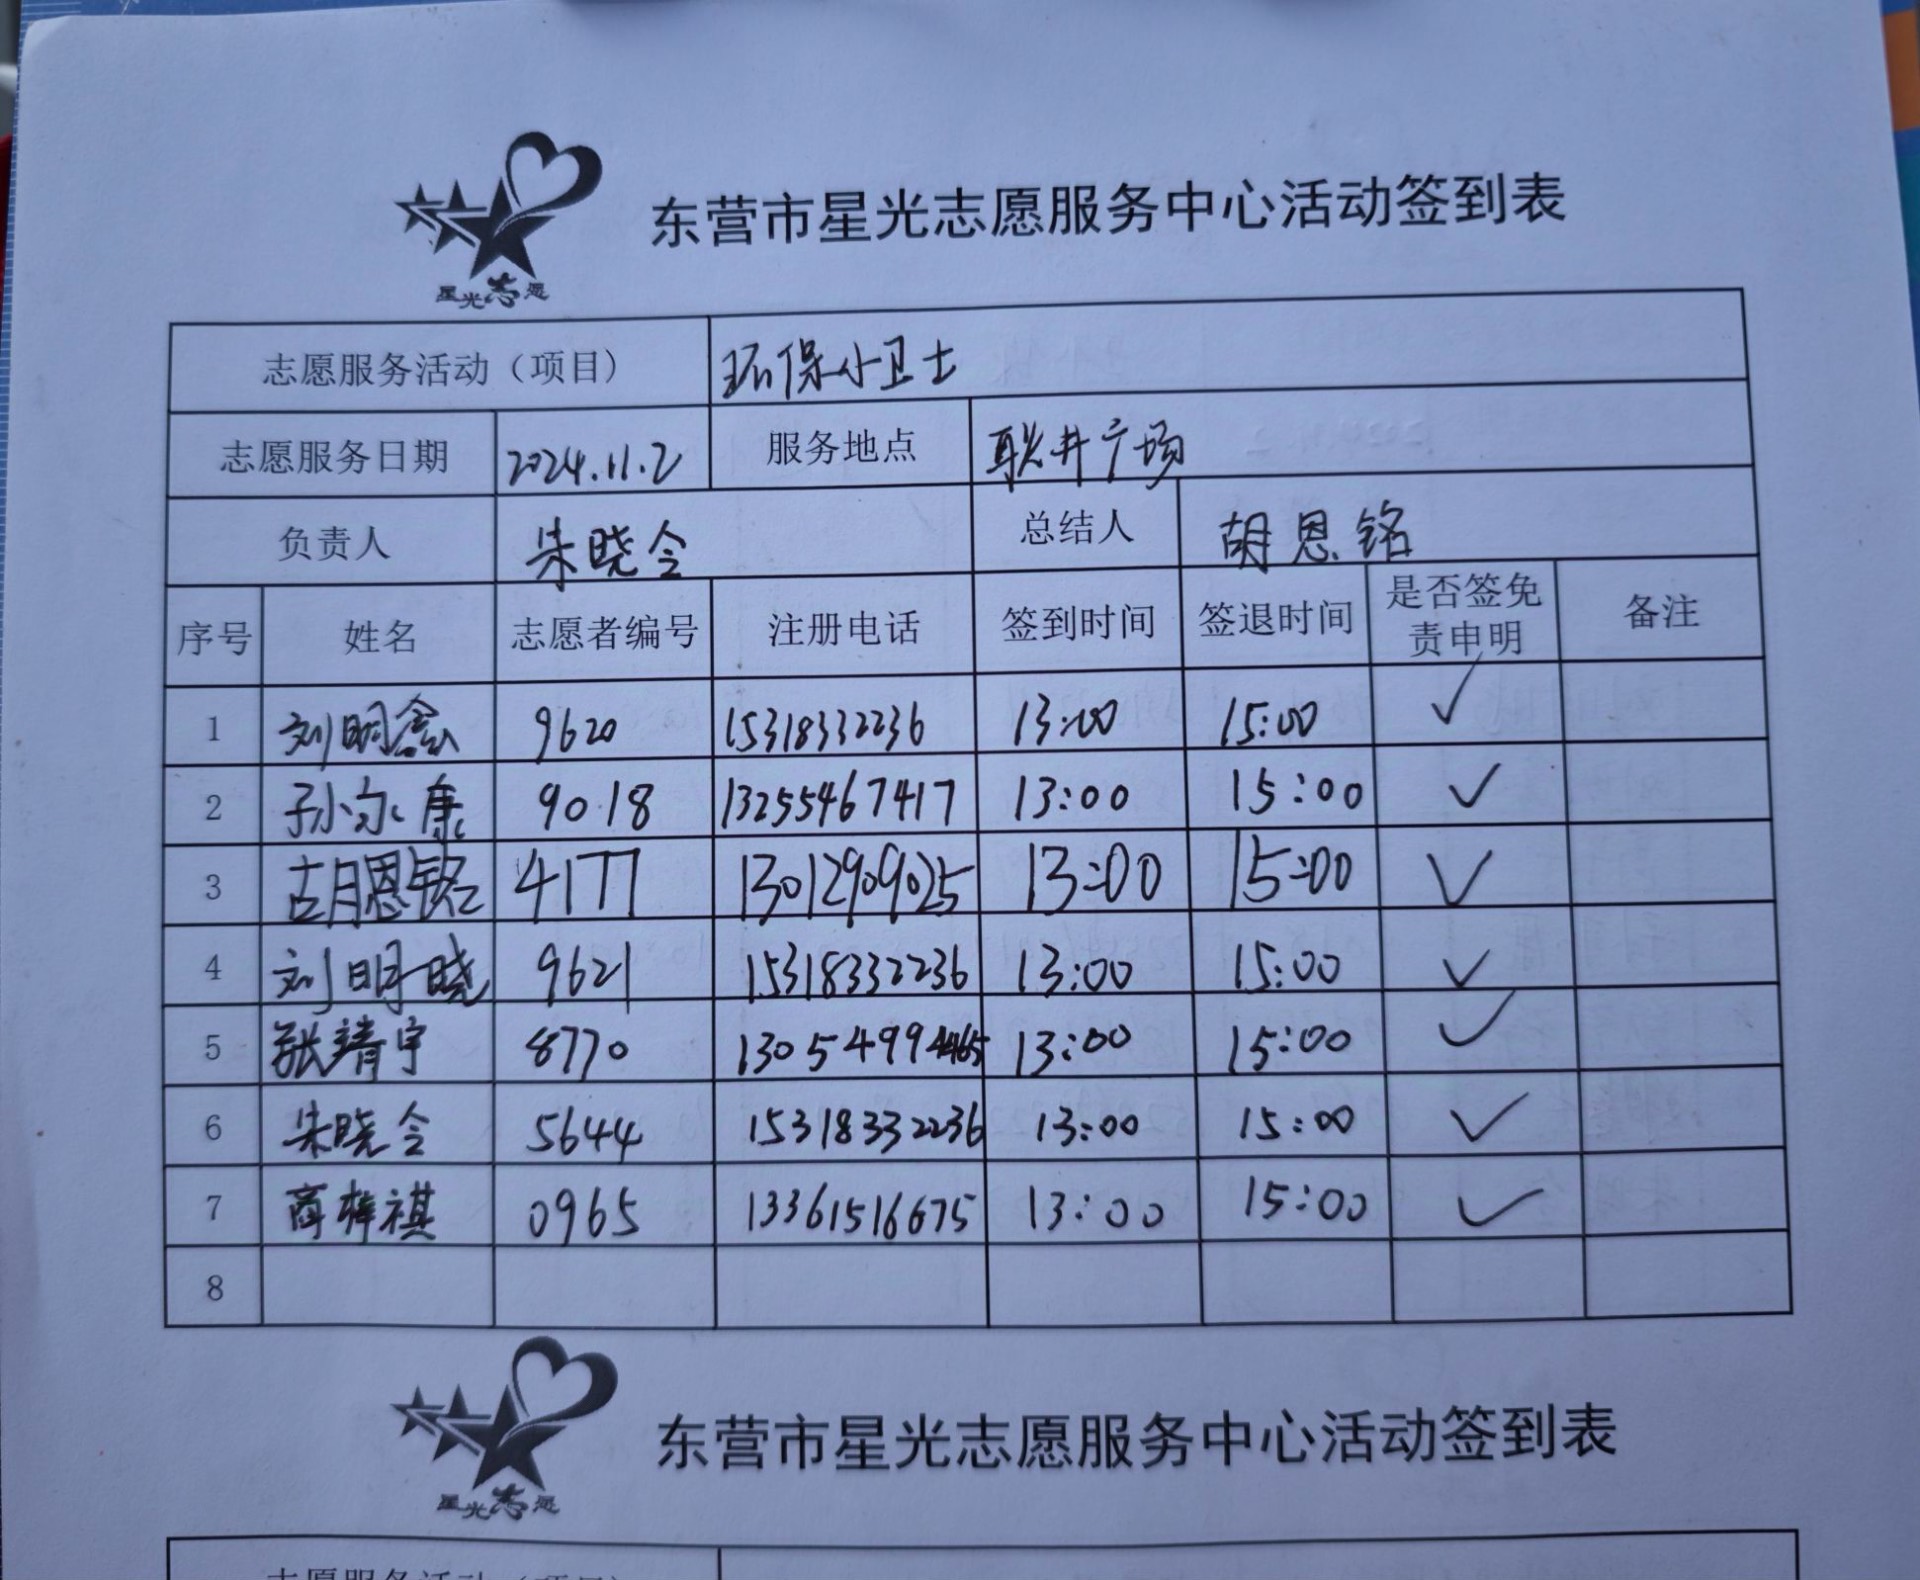 东营市星光志愿服务中心活动签到表
星光志愿
志愿服务活动（项目） 环保小卫士
志愿服务日期 2024.11.2 服务地点 耿井广场
负责人 朱晓令 总结人 胡恩铭
序号 姓名 志愿者编号 注册电话 签到时间 签退时间 是否签免责申明 备注
1 刘明 9620 15318332236 13:00 15:00 ✓
2 孙尔康 9018 13255467417 13:00 15:00 ✓
3 胡恩铭 4177 13012909025 13:00 15:00 ✓
4 刘明晓 9621 15318332236 13:00 15:00 ✓
5 张靖宇 8770 13:00 15:00 ✓
6 朱晓令 5644 15318332236 13:00 15:00 ✓
7 商梓祺 0965 13361516675 13:00 15:00 ✓
8
东营市星光志愿服务中心活动签到表
星光志愿
志愿服务活动（项目）